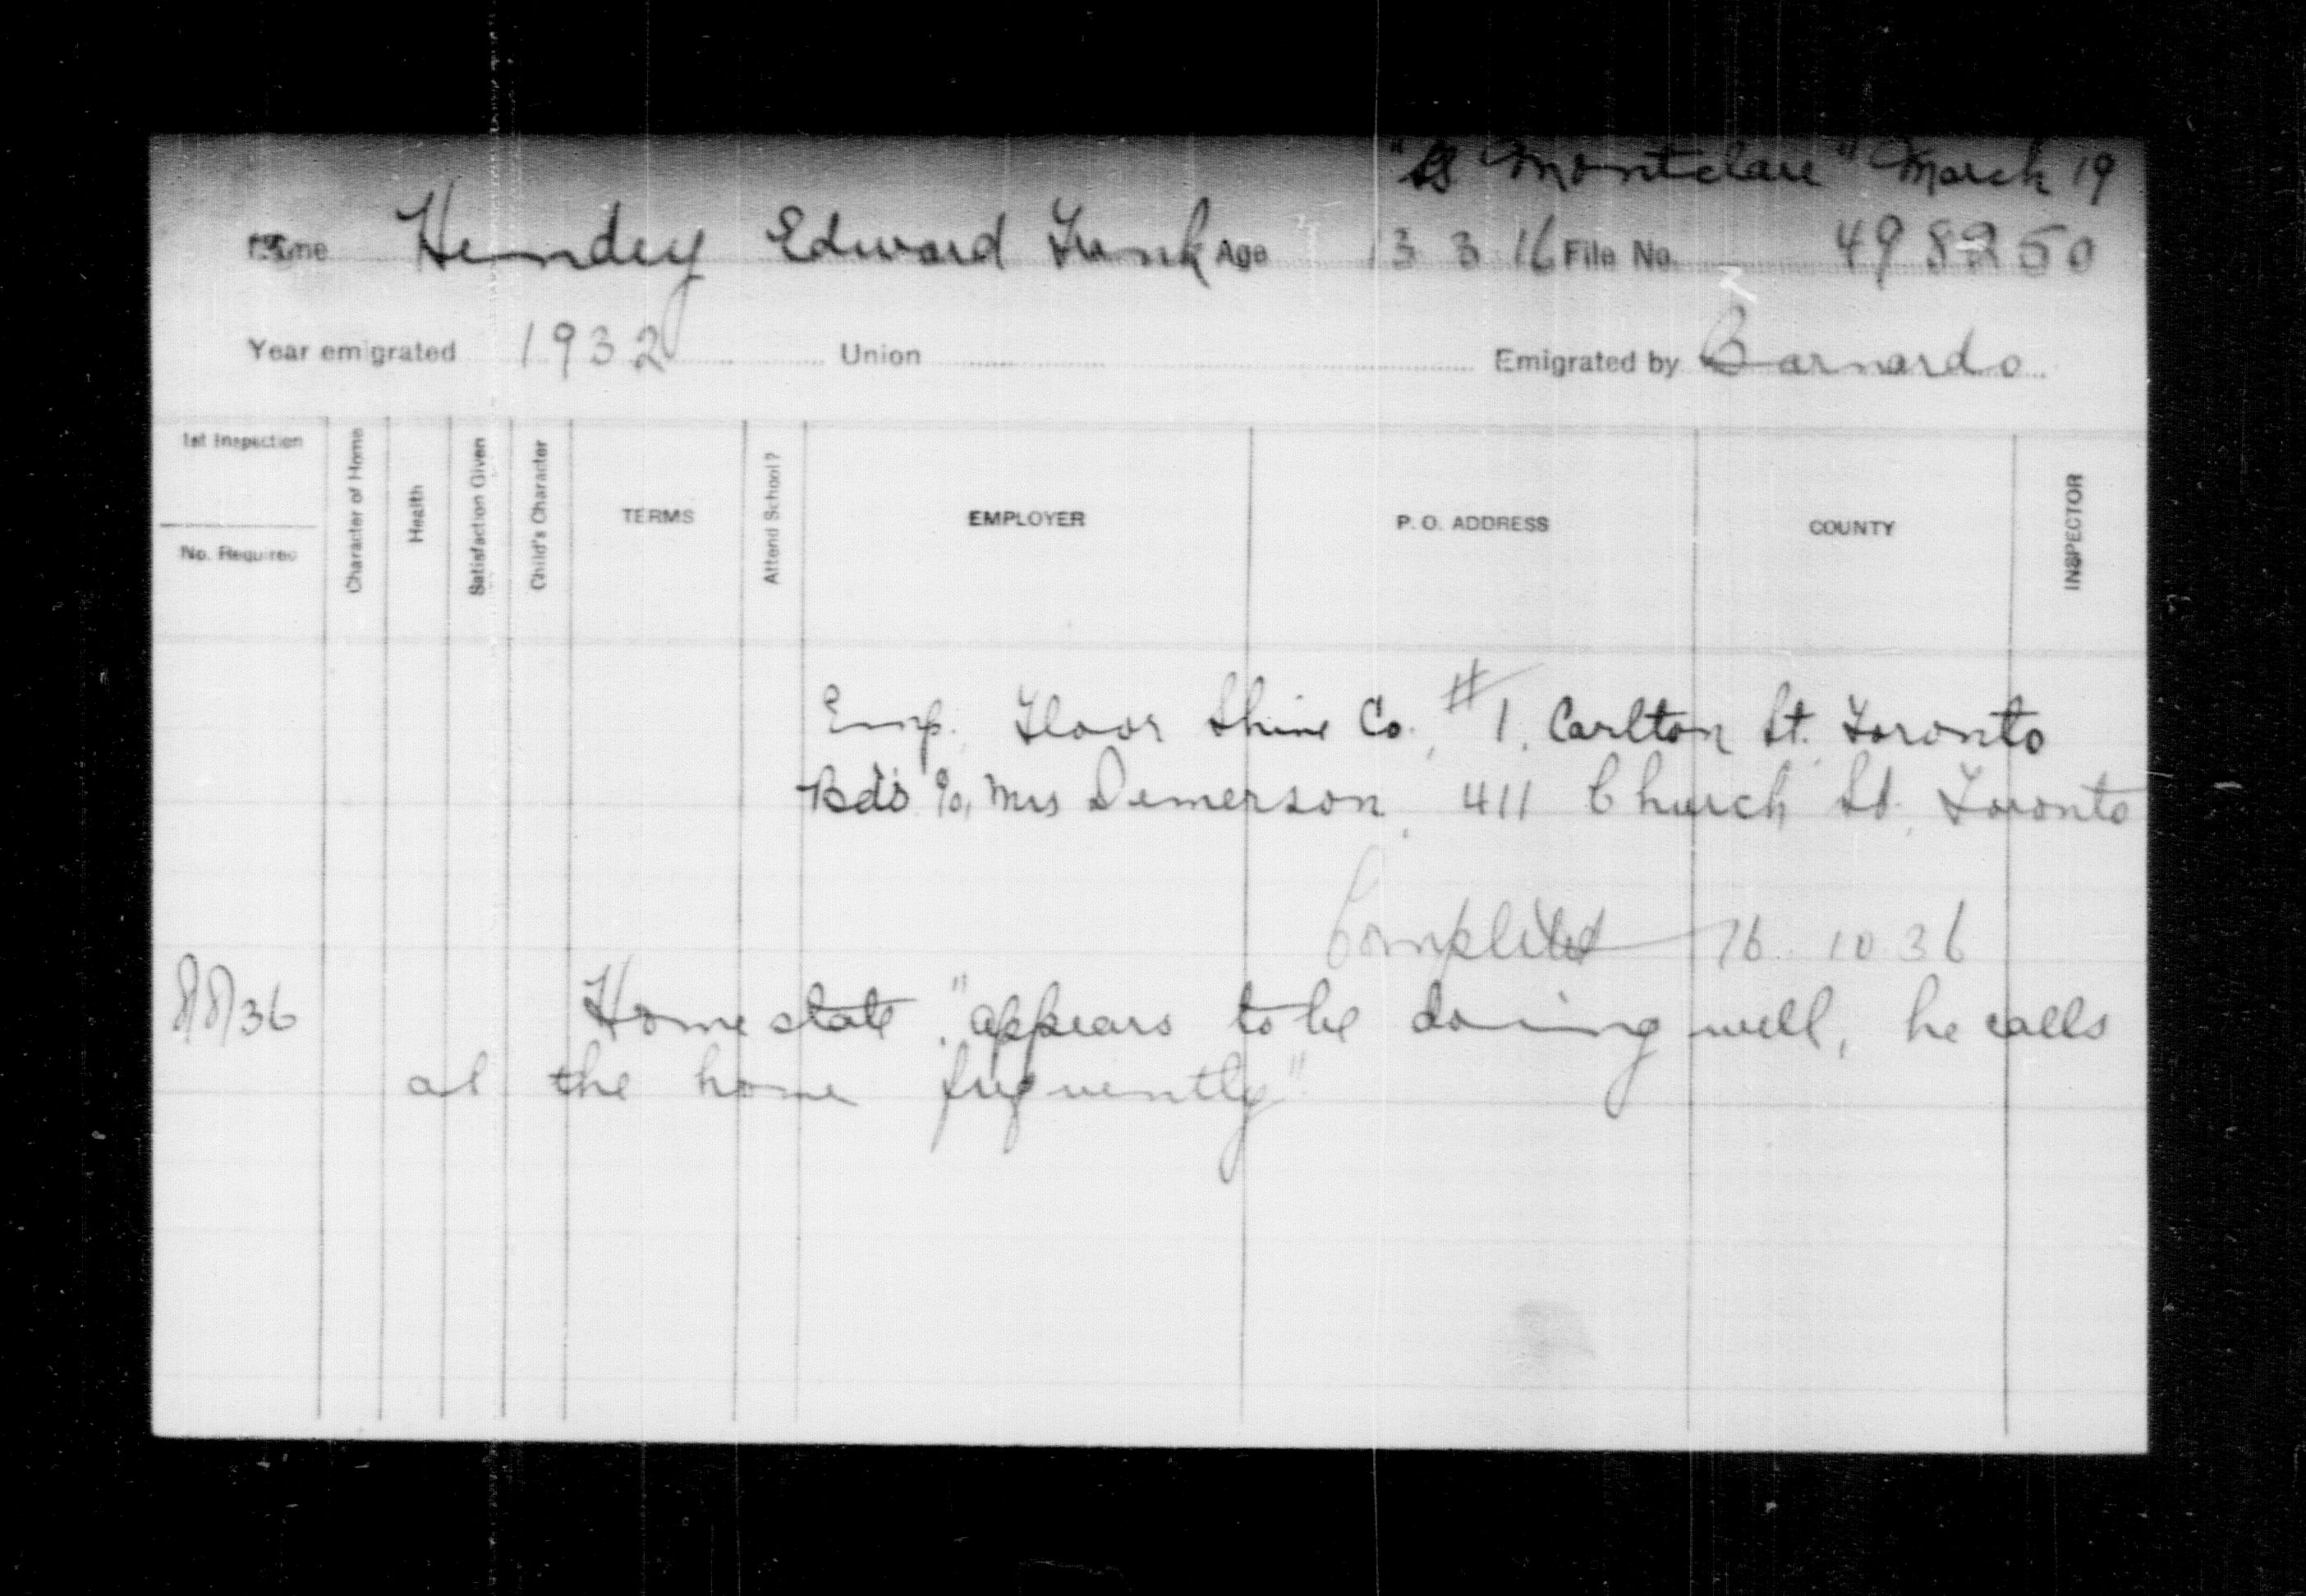 "SS Montclare" March 19
Name Hendey Edward Frank Age 13 3 16 File No. 498250
Year emigrated 1932 Union Emigrated by Barnardo
1st Inspection
No. Required
Character of Home
Health
Satisfaction Given
Child's Character
TERMS
Attend School?
EMPLOYER
P. O. ADDRESS
COUNTY
INSPECTOR
Emp. Floor Shine Co., #1, Carlton St. Toronto
Bds c/o, Mrs Demerson, 411 Church St, Toronto
Completed 16 10 36
8/8/36 Home state "appears to be doing well, he calls
at the home frequently"